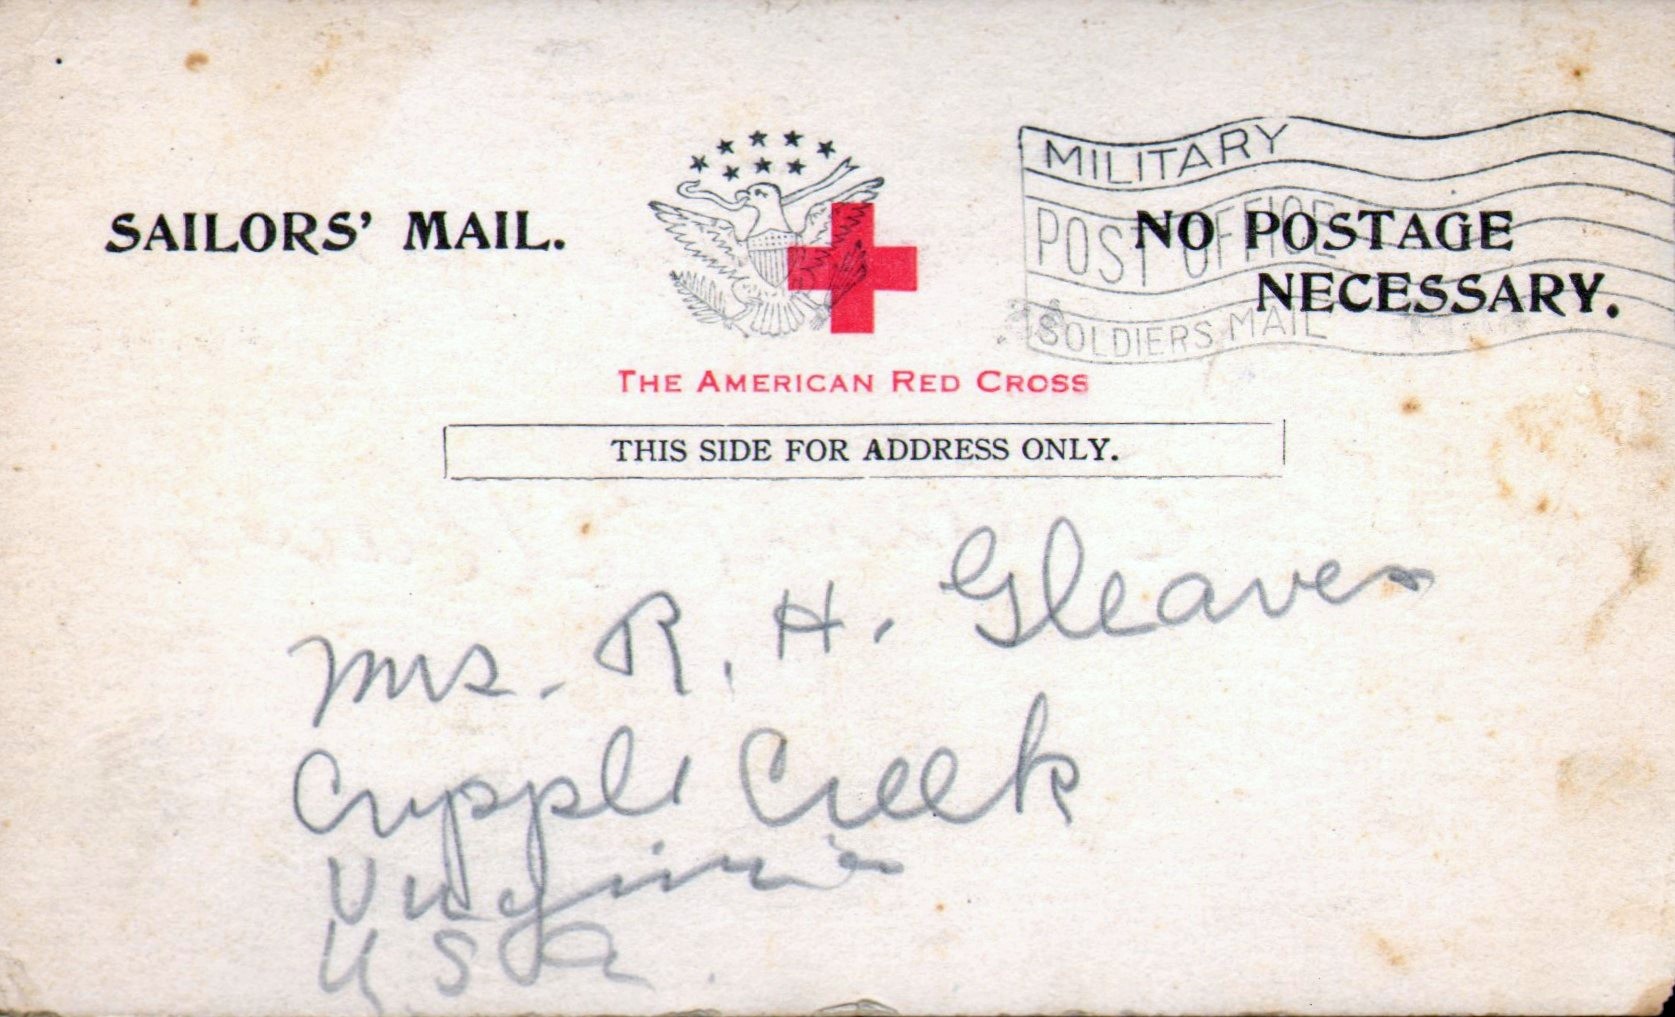 SAILORS' MAIL.
MILITARY
POST OFFICE
SOLDIERS MAIL
NO POSTAGE
NECESSARY.
THE AMERICAN RED CROSS
THIS SIDE FOR ADDRESS ONLY.
Mrs. R. H. Gleaves
Cripple Creek
Virginia
USA.